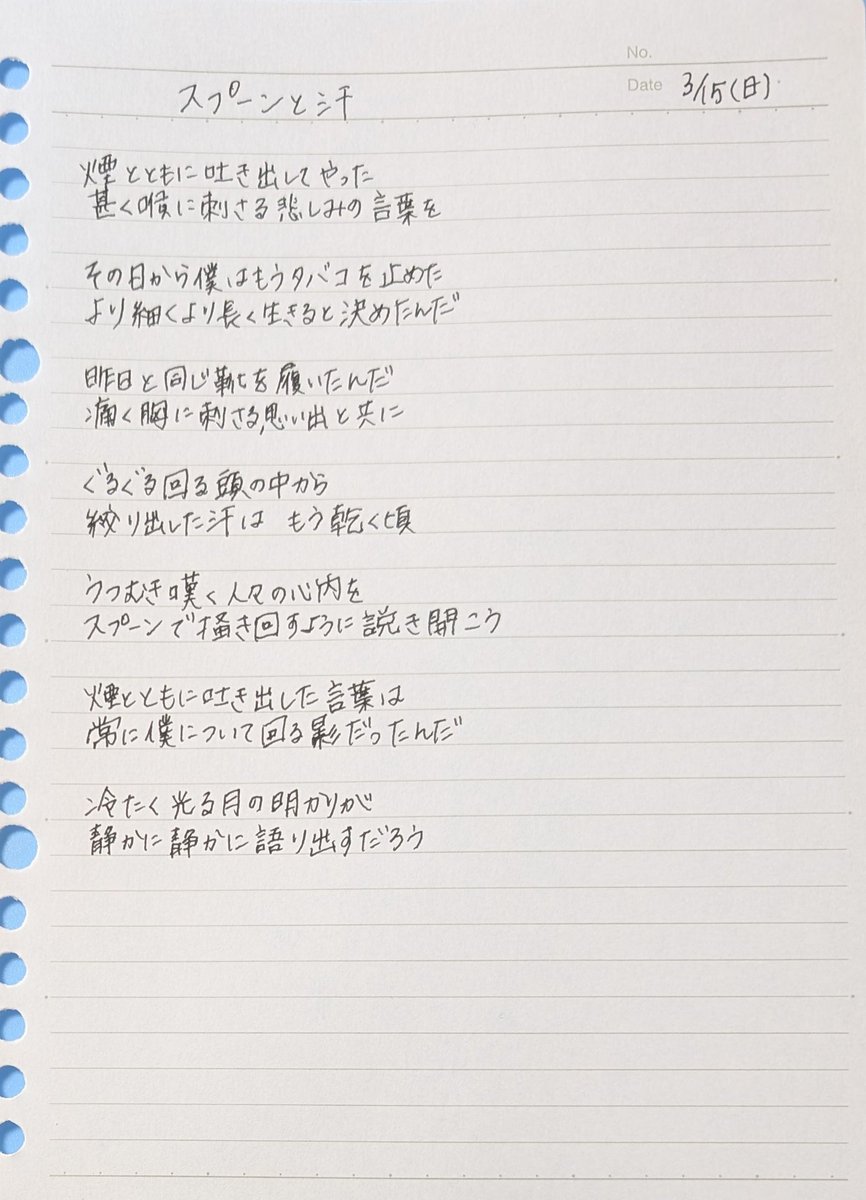 No.
Date 3/15(日)
スプーンと汗
煙とともに吐き出してやった
甚く喉に刺さる悲しみの言葉を
その日から僕はもうタバコを止めた
より細くより長く生きると決めたんだ
昨日と同じ靴を履いたんだ
痛く胸に刺さる思い出と共に
ぐるぐる回る頭の中から
絞り出した汗は もう乾く頃
うつむき嘆く人々の心内を
スプーンで掻き回すように説き開こう
煙とともに吐き出した言葉は
常に僕について回る影だったんだ
冷たく光る月の明かりが
静かに静かに語り出すだろう